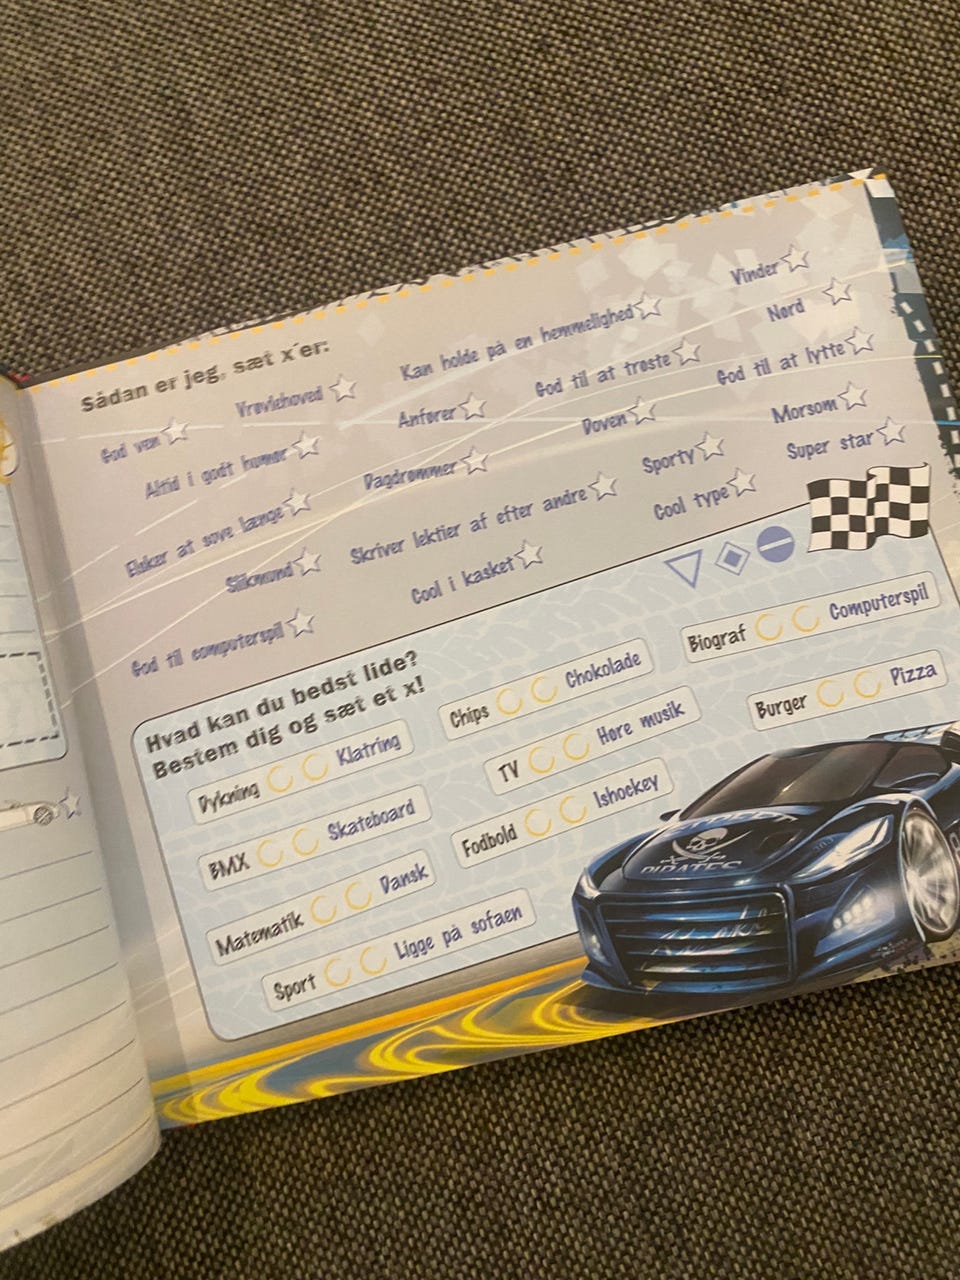 Sådan er jeg, sæt x'er:
God ven
Vrøvlehoved
Kan holde på en hemmelighed
Vinder
Altid i godt humør
Anfører
God til at trøste
Nørd
Elsker at sove længe
Dagdrømmer
Doven
God til at lytte
Slikmund
Skriver lektier af efter andre
Sporty
Morsom
God til computerspil
Cool i kasket
Cool type
Super star
Hvad kan du bedst lide?
Bestem dig og sæt et x!
Dykning Klatring
Chips Chokolade
Biograf Computerspil
BMX Skateboard
TV Høre musik
Burger Pizza
Matematik Dansk
Fodbold Ishockey
Sport Ligge på sofaen
STREET
PIRATES